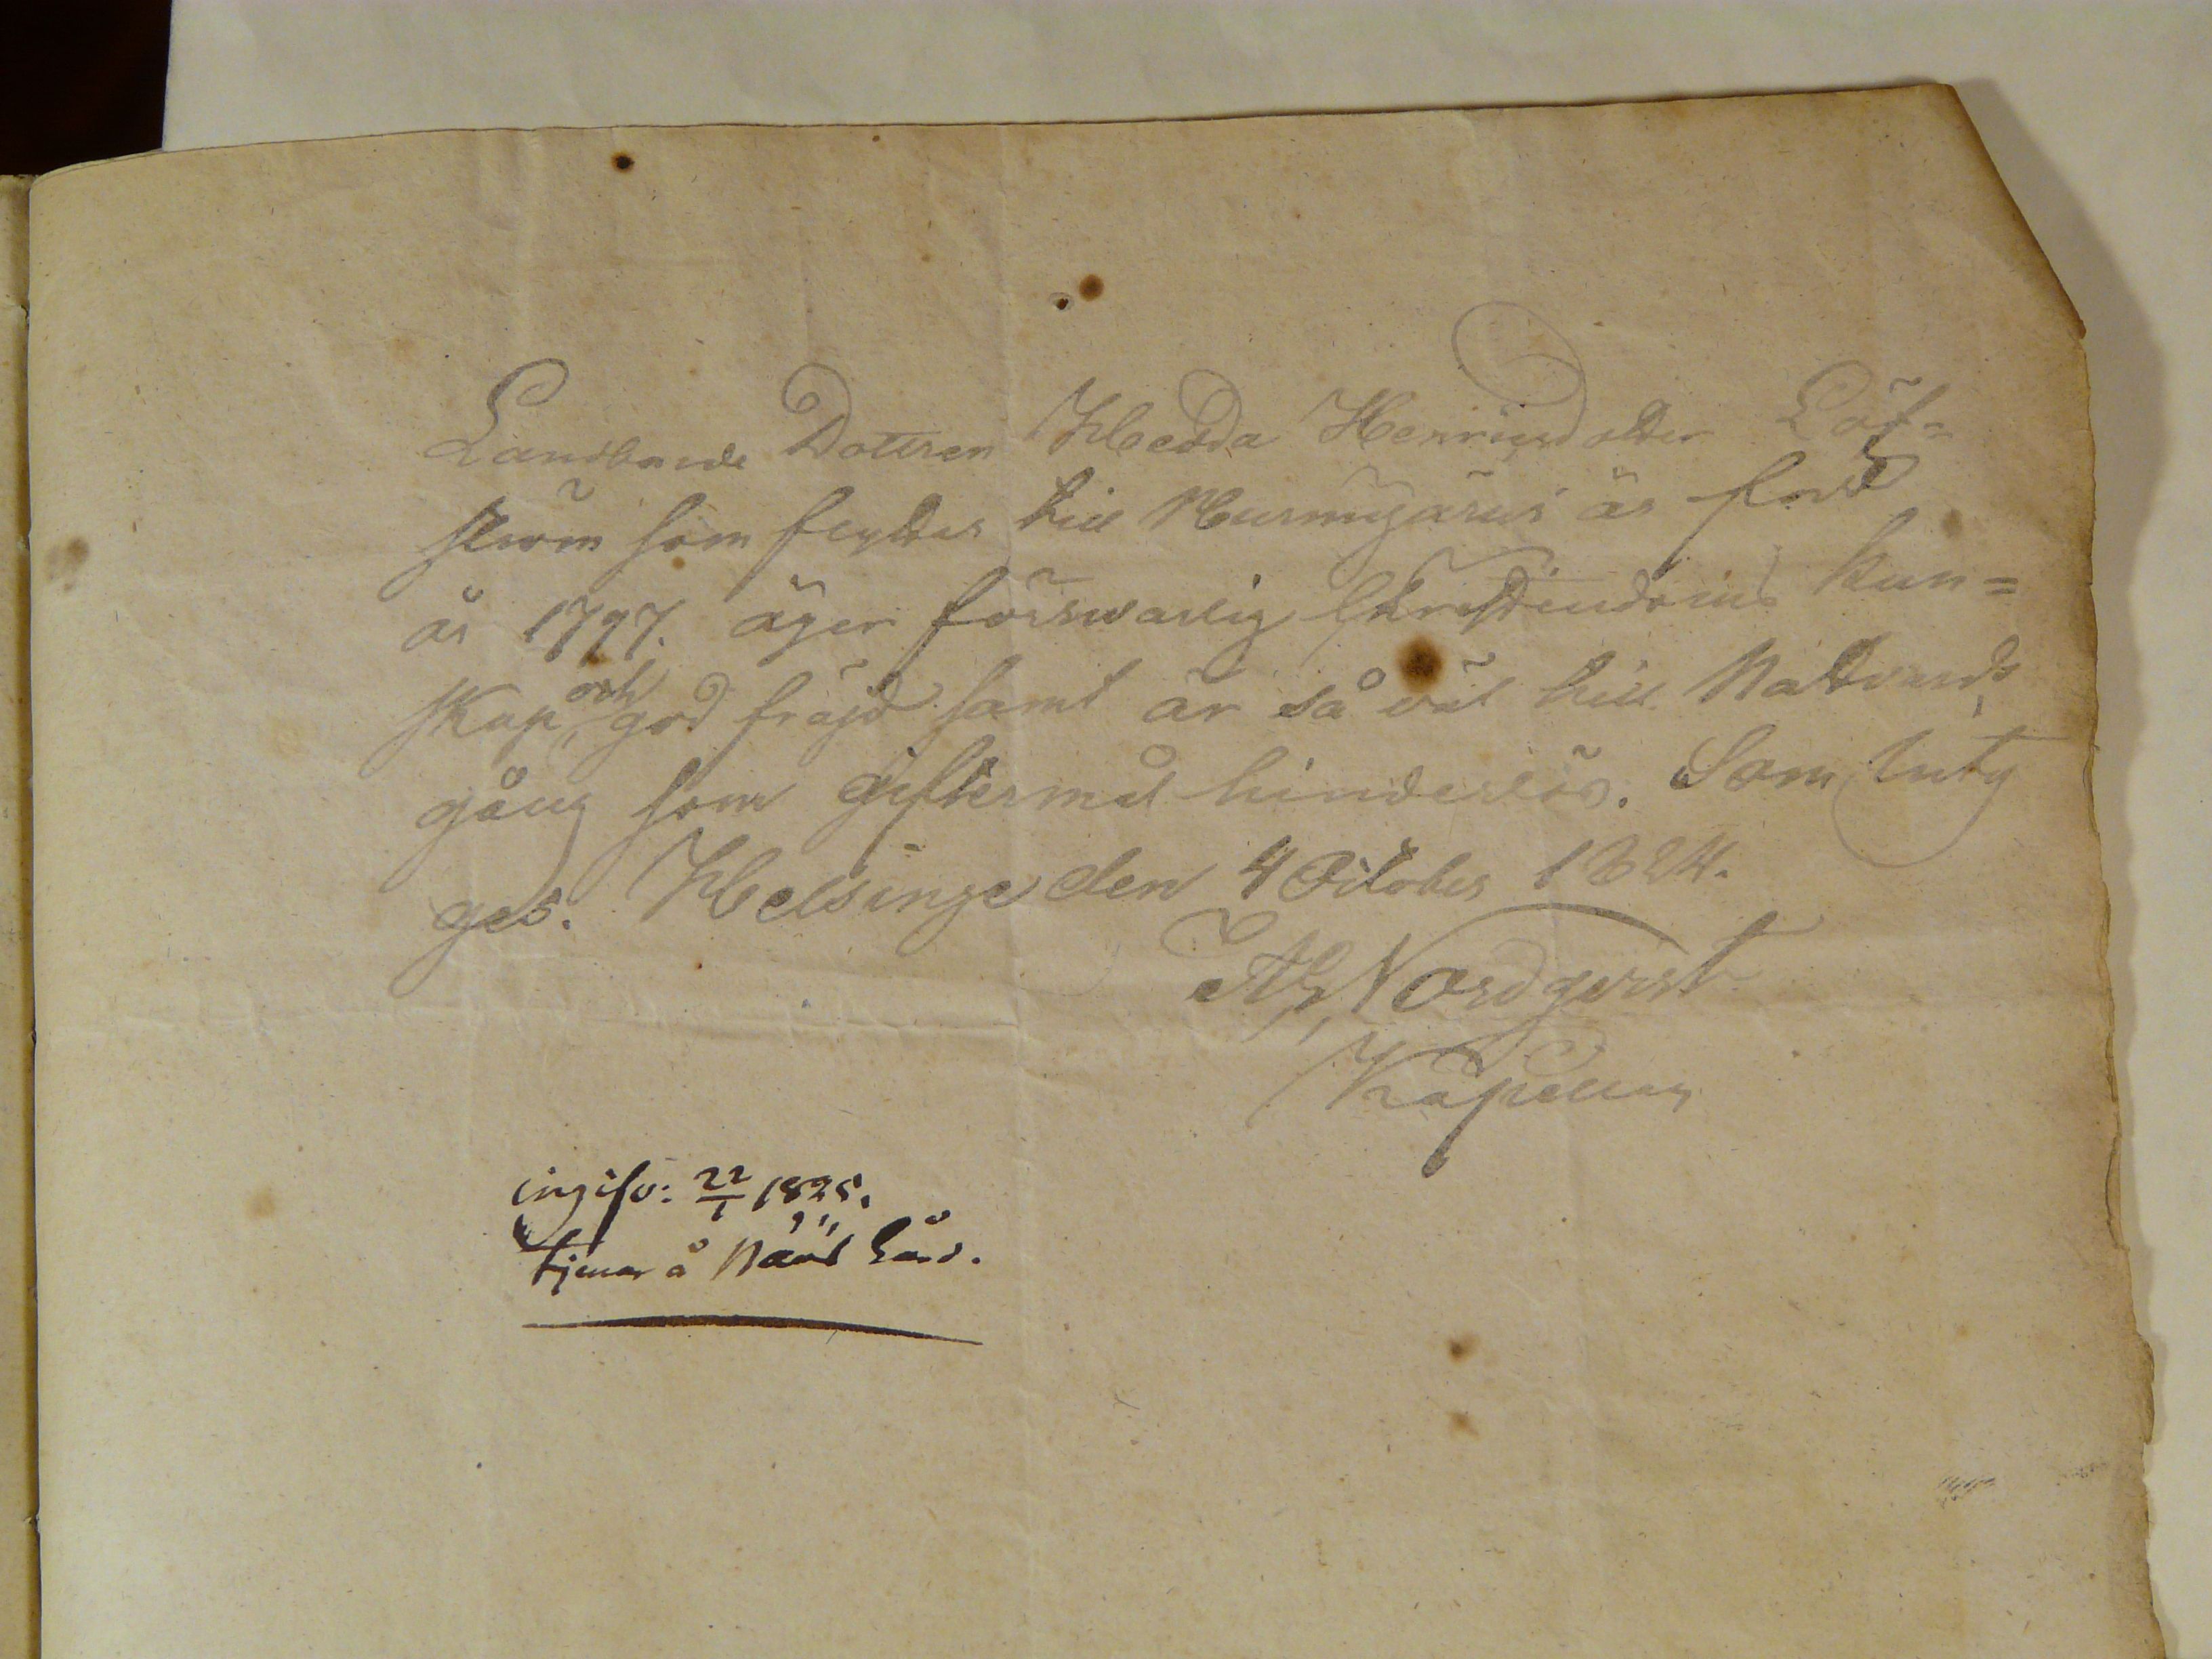 Landbonde Dottren Hedda Henricsdotter Löf-
ström som flyttar till Nurmijärvi är född
år 1797. äger försvarlig Christendoms kun=
skap och god fräjd samt är så väl till Nattvards
gång som giftermål hinderlös. Som intyg
ges. Helsinge den 4 October 1824.
Nordqvist
Kapellan
ingifv: 22/1 1825.
tjenar å gård.